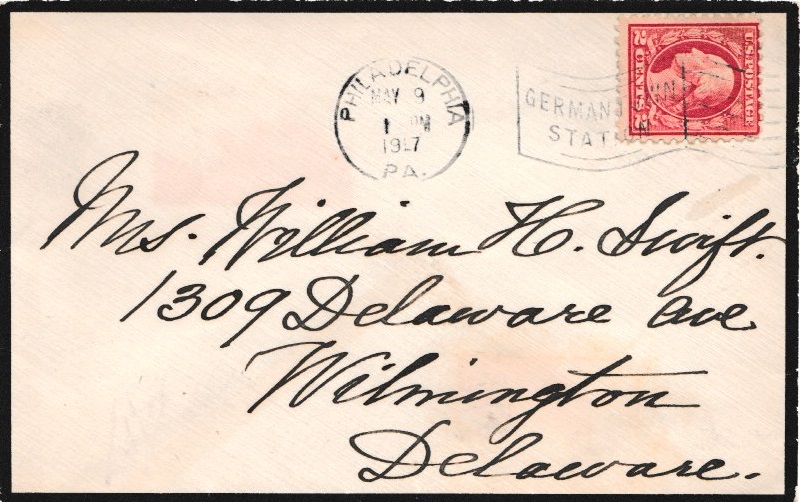 PHILADELPHIA
MAY 9
1 PM
1917
PA.
GERMANTOWN
STATION
U.S. POSTAGE
2 CENTS 2
Mrs. William H. Swift.
1309 Delaware Ave
Wilmington
Delaware.